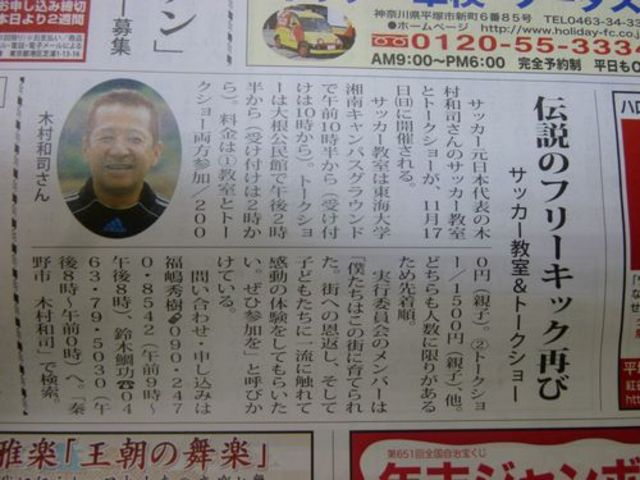 お申し込み締切
本日より2週間
ン」
ー募集
神奈川県平塚市新町6番85号
●ホームページ http://www.holiday-fc.co.j
0120-55-333
AM9:00〜PM6:00 完全予約制 平日も
伝説のフリーキック再び
サッカー教室&トークショー
サッカー元日本代表の木
村和司さんのサッカー教室
とトークショーが、11月17
日(日)に開催される。
サッカー教室は東海大学
湘南キャンパスグラウンド
で午前10時半から(受け付
けは10時から)。トークショ
ーは大根公民館で午後2時
半から(受け付けは2時か
ら)。料金は①教室とトー
クショー両方参加/200
0円(親子)。②トークショ
ー/1500円(親子)、他。
どちらも人数に限りがある
ため先着順。
実行委員会のメンバーは
「僕たちはこの街に育てられ
た。街への恩返し、そして
子どもたちに一流に触れて
感動の体験をしてもらいた
い。ぜひ参加を」と呼びか
けている。
問い合わせ・申し込みは
福嶋秀樹090・247
0・8542(午前9時〜
午後8時)、鈴木鯛功☎04
63・79・5030(午
後8時〜午前0時)へ。「秦
野市 木村和司」で検索。
木村和司さん
雅楽「王朝の舞楽」
第651回全国自治宝くじ
年末ジャンボ